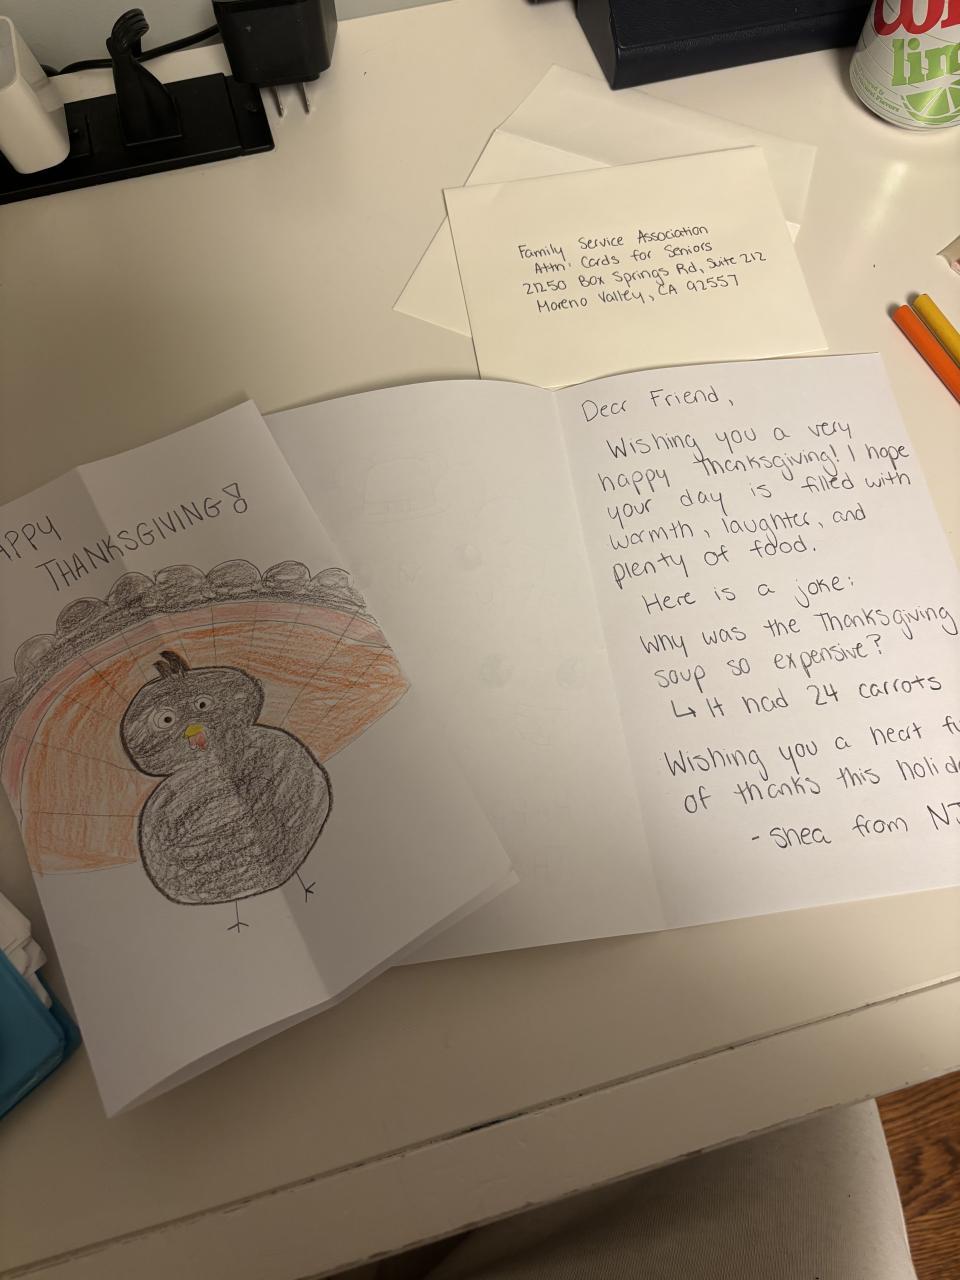 lim
Family Service Association
Attn: Cards for Seniors
21250 Box Springs Rd, Suite 212
Moreno Valley, CA 92557
THANKSGIVING!
Dear Friend,
Wishing you a very
happy Thanksgiving! I hope
your day is filled with
warmth, laughter, and
plenty of food.
Here is a joke:
Why was the Thanksgiving
soup so expensive?
↳ It had 24 carrots
Wishing you a heart fu
of thanks this holid
- Shea from NJ